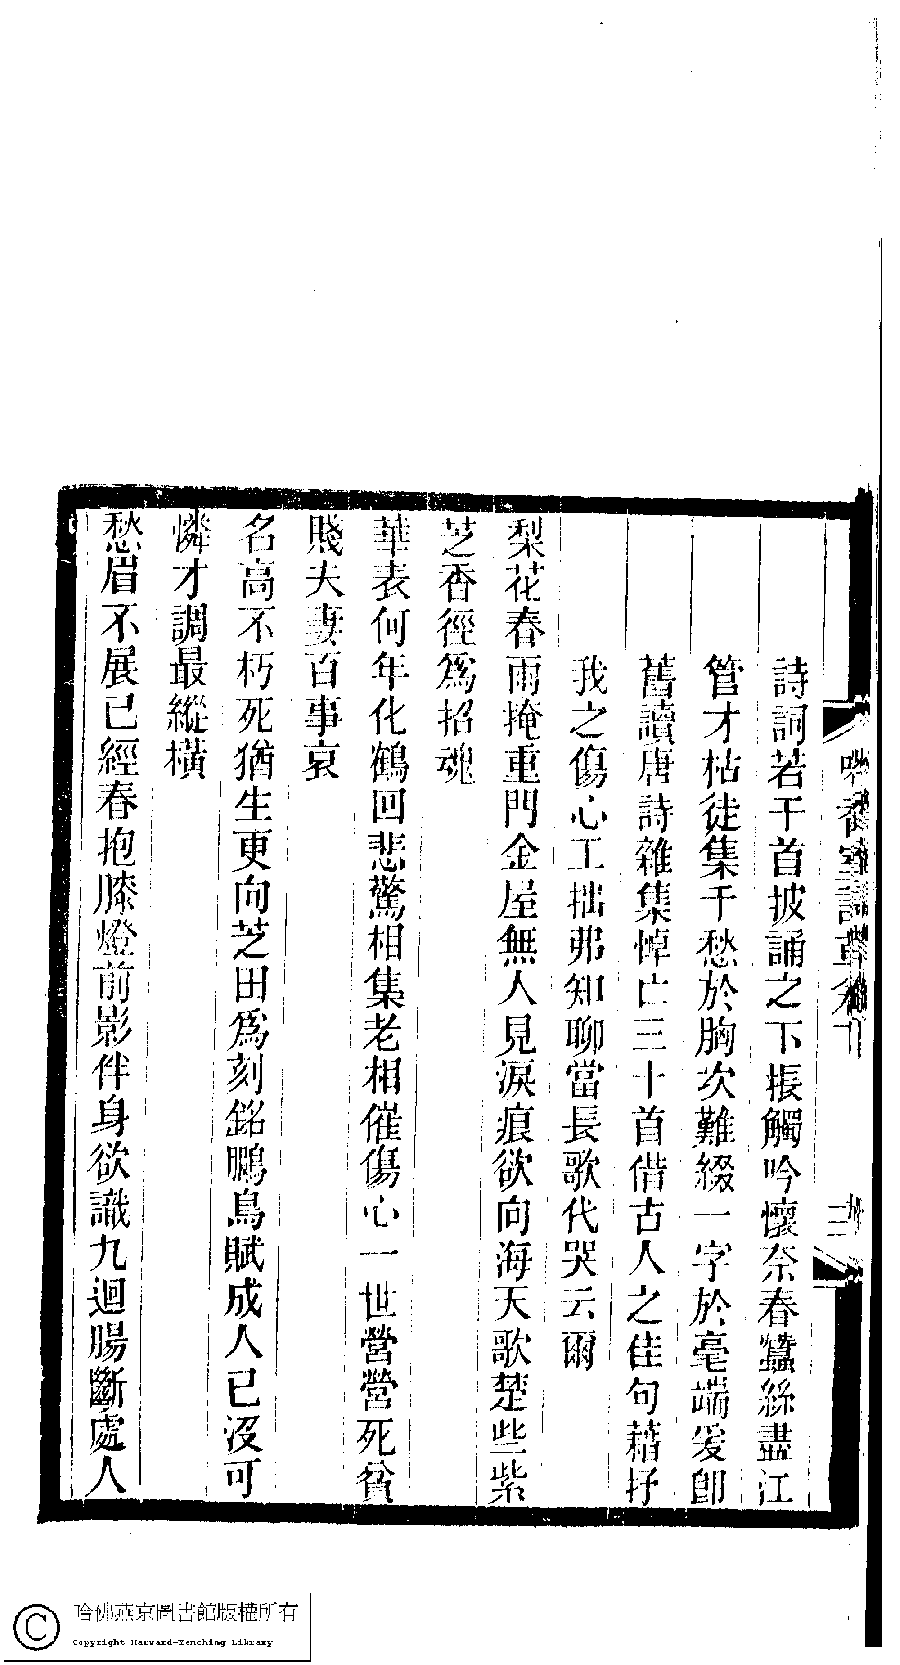 詩詞若干首披誦之下振觸吟懷奈春蠶絲盡江
管才枯徒集千愁於胸次難綴一字於毫端爰卽
舊讀唐詩雜集悼亡三十首借古人之佳句藉抒
我之傷心工拙弗知聊當長歌代哭云爾
梨花春雨掩重門金屋無人見淚痕欲向海天歌楚些紫
芝香徑爲招魂
華表何年化鶴回悲驚相集老相催傷心一世營營死貧
賤夫妻百事哀
名高不朽死猶生更向芝田爲刻銘鵩鳥賦成人已沒可
憐才調最縱橫
愁眉不展已經春抱膝燈前影伴身欲識九迴腸斷處人
哈佛燕京圖書館版權所有
Copyright Harvard-Yenching Library